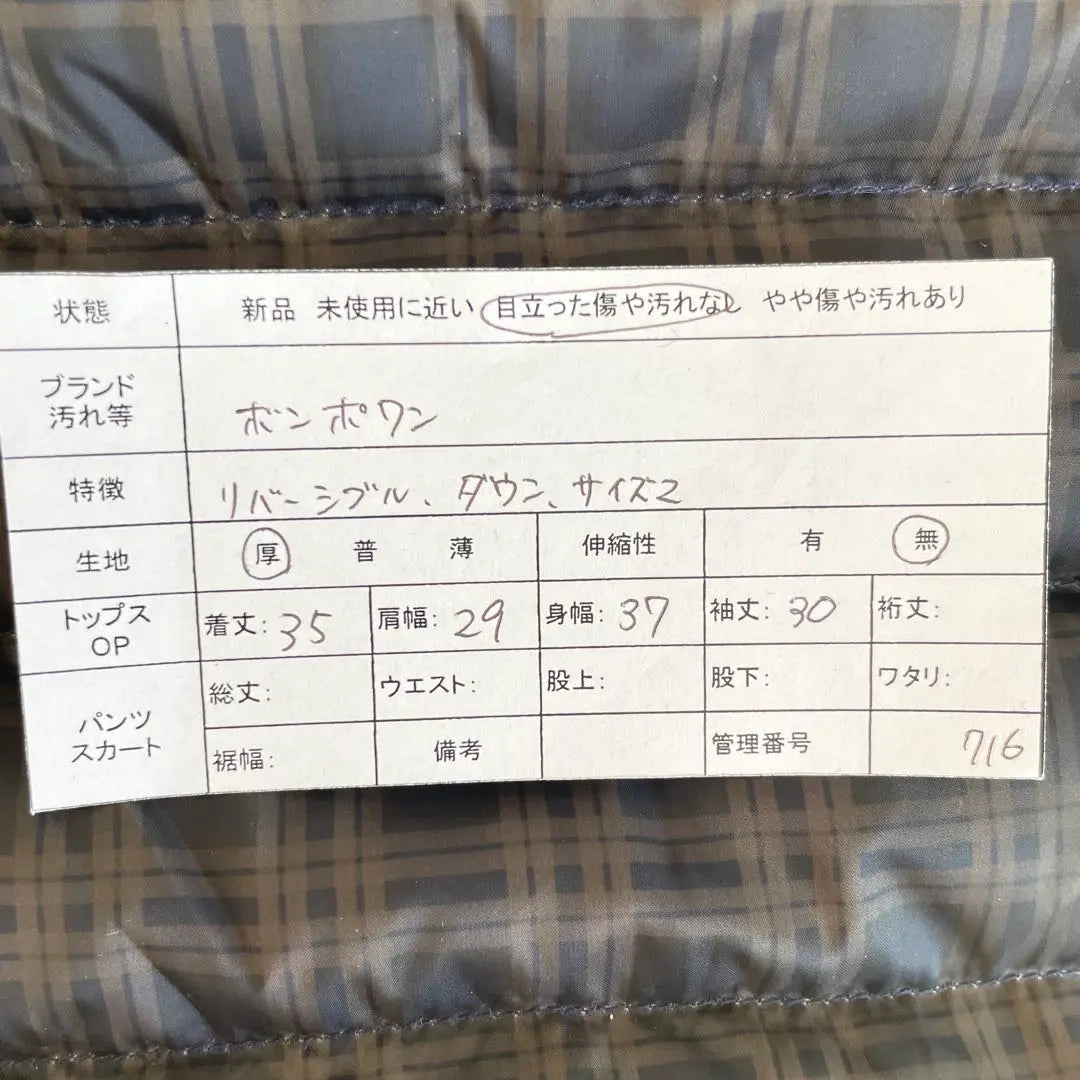 状態 新品 未使用に近い 目立った傷や汚れなし やや傷や汚れあり
ブランド
汚れ等
ボンポワン
特徴 リバーシブル、ダウン、サイズ2
生地 厚 普 薄 伸縮性 有 無
トップス
OP
着丈: 35 肩幅: 29 身幅: 37 袖丈: 30 裄丈:
パンツ
スカート
総丈: ウエスト: 股上: 股下: ワタリ:
裾幅: 備考 管理番号 716